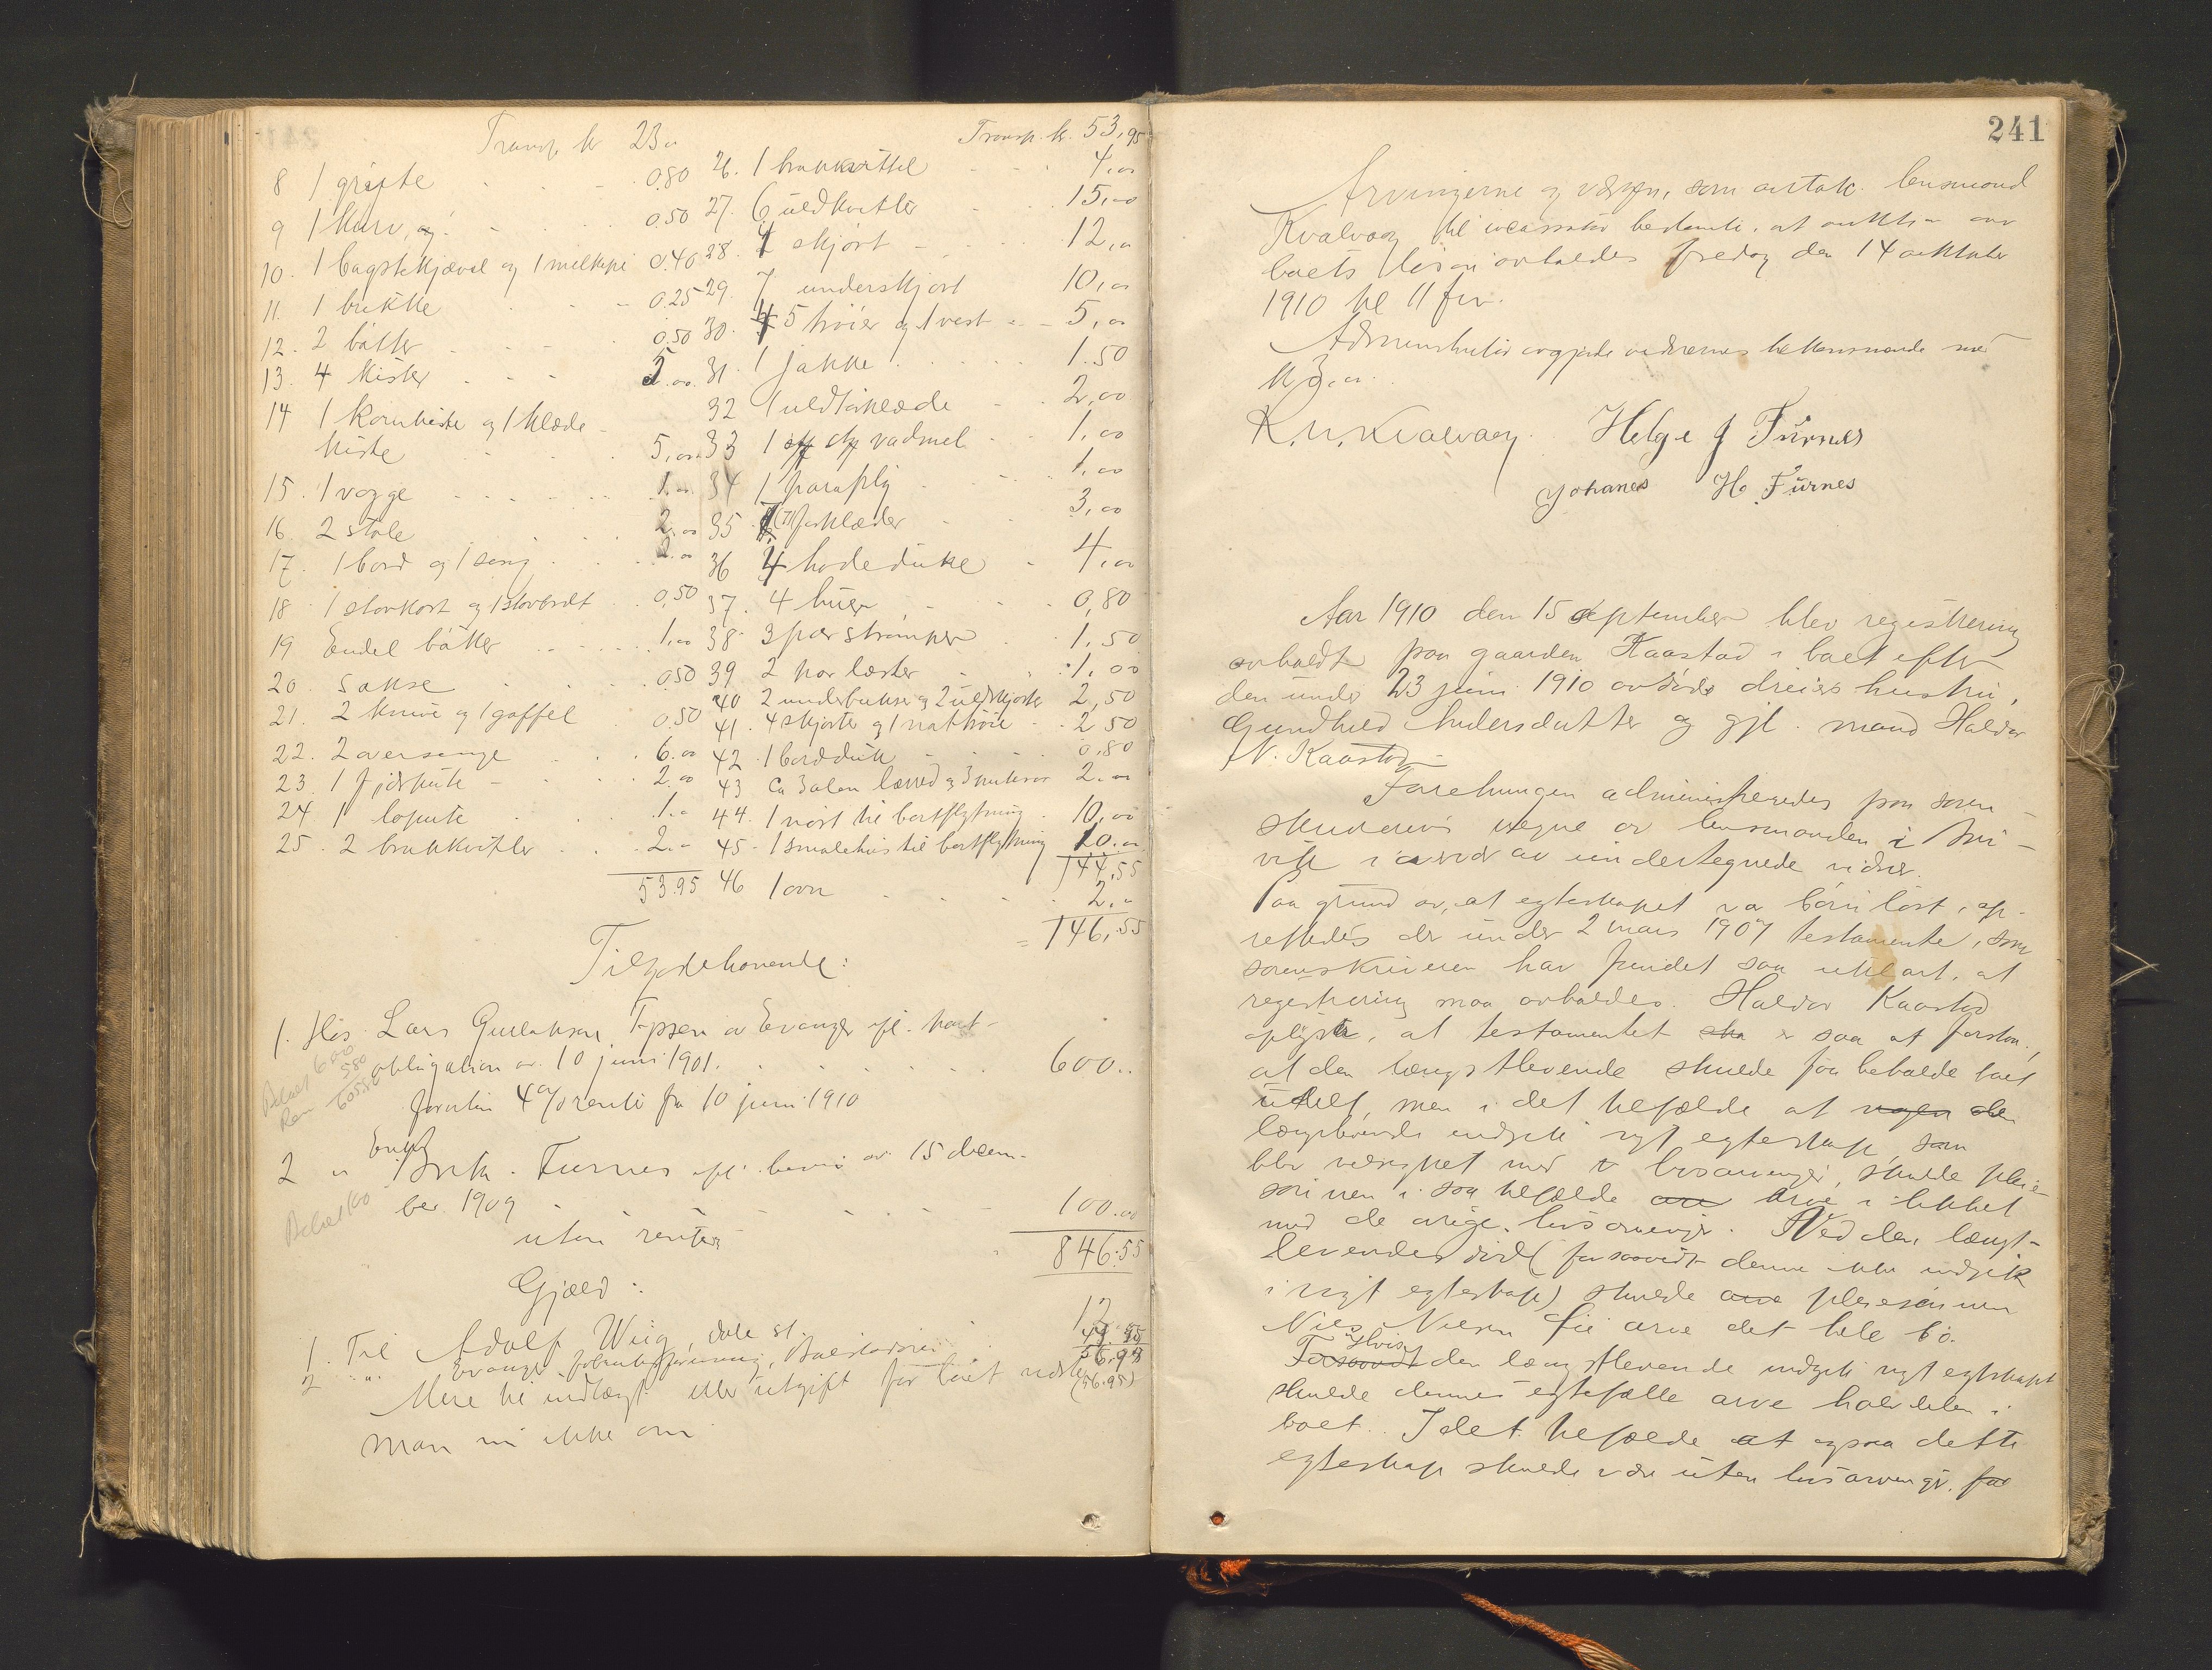 Transp. kr 23..
8 1 grypte 0.80
9 1 kurv, 0.50
10. 1 bagstekjævel og 1 melkepi 0.40
11. 1 brikke 0.25
12. 2 båtter 0.50
13. 4 kister 5.00
14 1 kornkiste og 1 klæde
kiste 5,00
15. 1 vogge 1.00
16. 2 stole 2.00
17. 1 bord og 1 seng 2.00
18 1 støvkost og 1 støvbret 0.50
19 Endel båtter 1.00
20. sakse 0.50
21. 2 knive og 1 gaffel 0.50
22. 2 oversenge 6.00
23. 1 fjærpute 2.00
24 1 lopute 1.00
25. 2 brukkvitler 2.00
53.95
Transp. kr. 53,95
26. 1 brukkvittel 4,00
27. 6 uldkvitler 15,00
28. 4 skjørt 12,00
29. 7 underskjørt 10,00
30. 5 trøier og 1 vest 5,00
31. 1 jakke 1.50
32 1 uldtørklæde 2,00
33 1 vadmel 1,00
34 1 paraply 1,00
35 forklæder 3,00
36 4 hodeduke 4,00
37. 4 huer 0,80
38. 3 par strømper 1,50
39. 2 par læster 1,00
40 2 underbukser og 2 uldskjorter 2,50
41. 4 skjorter og 1 nattrøie 2.50
42. 1 bordduk 0.80
43 Ca 3 alen lærred og 3 2.00
44. 1 nøst til bortflytning 10,00
45. 1 smalehus til bortflytning 10.00
144.55
46 1 ovn 2.00
= 146,55
Tilgodehavende:
1. Hos Lars Gullaksen af Evanger efl. pant-
obligation av 10 juni 1901. 600..
foruten 4% rente fra 10 juni 1910
2 " Brik. Furnes efl. bevis av 15 decem-
ber 1909 100.00
uten renter
846.55
Gjæld:
1. Til Adolf Wiig, Dale st. 12
2 " Evanger Bolstadøri
56.95
Mere til indtægt eller utgift for boet vidste
man nu ikke om
241
Arvingerne og værgen, som antok lensmand
Kvalvaag til incassator bestemte, at auktion over
boets løsøre avholdes fredag den 14 oktober
1910 kl 11 fm.
Administrator avgjorde vidnernes tilkommende med
kr 3.00.
K. N. Kvalvaag. Helge J Furnes
Johanes H. Furnes
Aar 1910 den 15 september blev registrering
avholdt paa gaarden Kaastad i boet efter
den under 23 juni 1910 avdøde dreiers hustru,
Gundhild Andersdatter og gjl. mand Haldor
N. Kaastad
Forretningen administreredes paa soren-
skriverens vegne av lensmanden i Bru-
vik i overvær av undertegnede vidner.
Paa grund av, at egteskapet var barnløst, op-
rettedes der under 2 mars 1907 testamente, som
sorenskriveren har fundet saa uklart, at
registrering maa avholdes. Haldor Kaastad
oplyste, at testamentet er saa at forstaa,
at den længstlevende skulde faa beholde boet
udelt, men i det tilfælde at den
længstlevende indgik nyt egteskap, som
blev velsignet med livsarvinger, skulde pleie-
sønnen i saa tilfælde arve i likhet
med de øvrige livsarvinger. Ved den længst-
levendes død (forsaavidt denne ikke indgik
i nyt egteskap) skulde pleiesønnen
Nils Nilsen Lie arve det hele bo.
Hvis den længstlevende indgik nyt egteskap
skulde dennes egtefælle arve halvdelen i
boet. I det tilfælde at ogsaa dette
egteskap skulde være uten livsarvinger, for